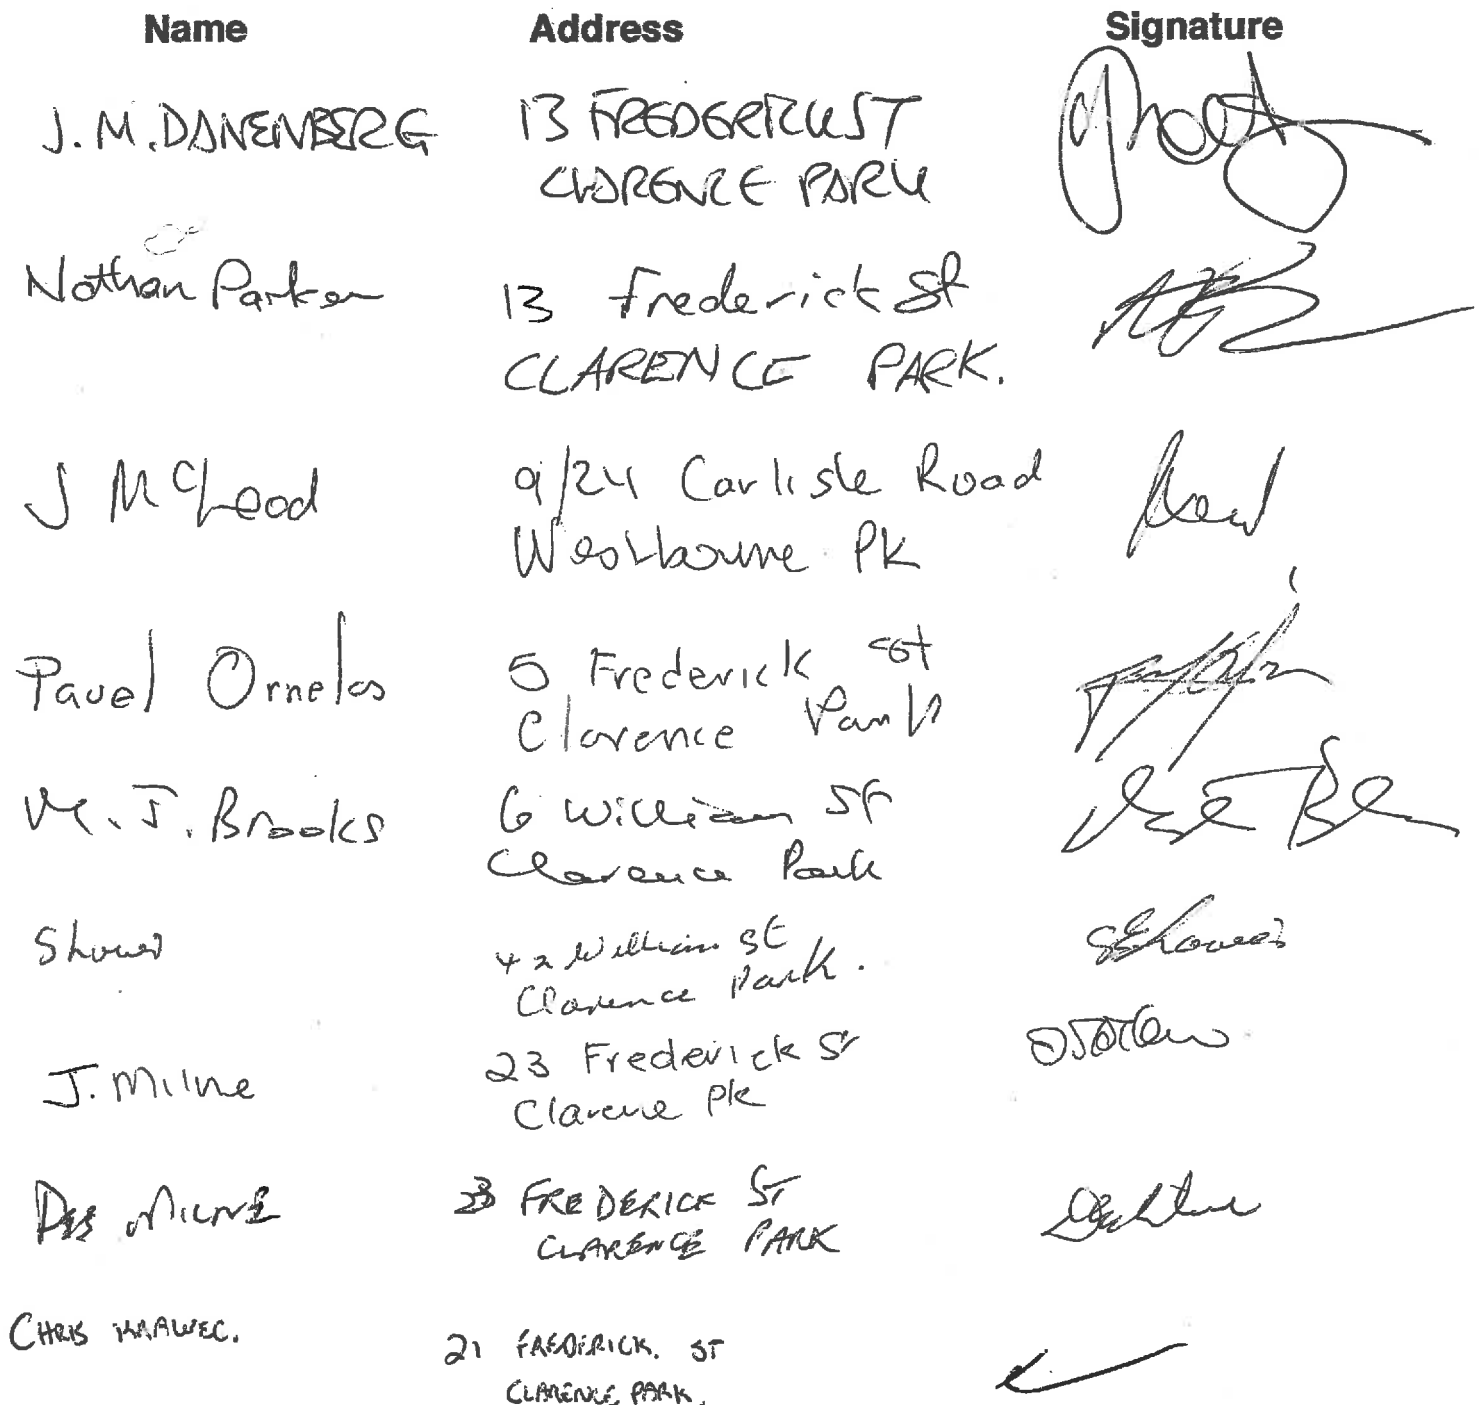 Name Address Signature
J. M. DANENBERG 13 FREDERICK ST
CLARENCE PARK
Nathan Parker 13 Frederick St
CLARENCE PARK.
J McLeod 9/24 Carlisle Road
Westbourne PK
Pavel Ornelas 5 Frederick st
Clarence Park
M. J. Brooks 6 William St
Clarence Park
William St
Clarence Park.
J. Milne 23 Frederick St
Clarence Pk
Des MILNE 23 FREDERICK ST
CLARENCE PARK
CHRIS KRAWEC. 21 FREDERICK. ST
CLARENCE PARK.